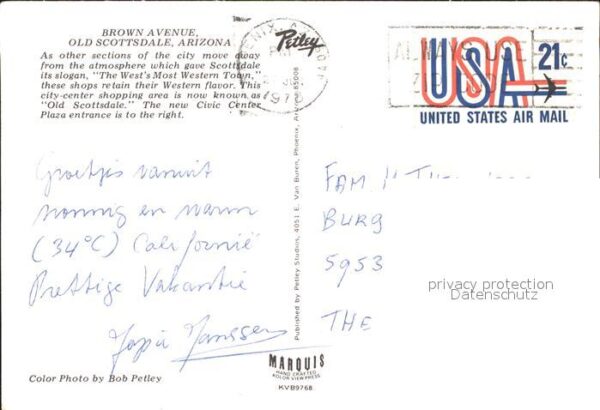 BROWN AVENUE,
OLD SCOTTSDALE, ARIZONA
As other sections of the city move away
from the atmosphere which gave Scottsdale
its slogan, "The West's Most Western Town,"
these shops retain their Western flavor. This
city-center shopping area is now known as
"Old Scottsdale." The new Civic Center
Plaza entrance is to the right.
Petley
ALWAYS USE
21c
USA
UNITED STATES AIR MAIL
Groetjes vanuit
zonnig en warm
(34°C) Californië
Prettige Vakantie
Janssen
Published by Petley Studios, 4051 E. Van Buren, Phoenix, Arizona 85008
FAM.
BURG
5953
THE
privacy protection
Datenschutz
MARQUIS
HAND CRAFTED
KOLOR VIEW PRESS
KVB9768
Color Photo by Bob Petley